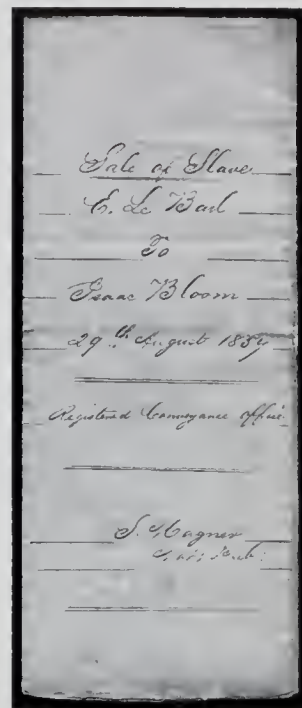 Sale of Slave
E. Le Barl
To
Isaac Bloom
29th August 1859
Registered Conveyance office
S. Magner
Not. Pub.